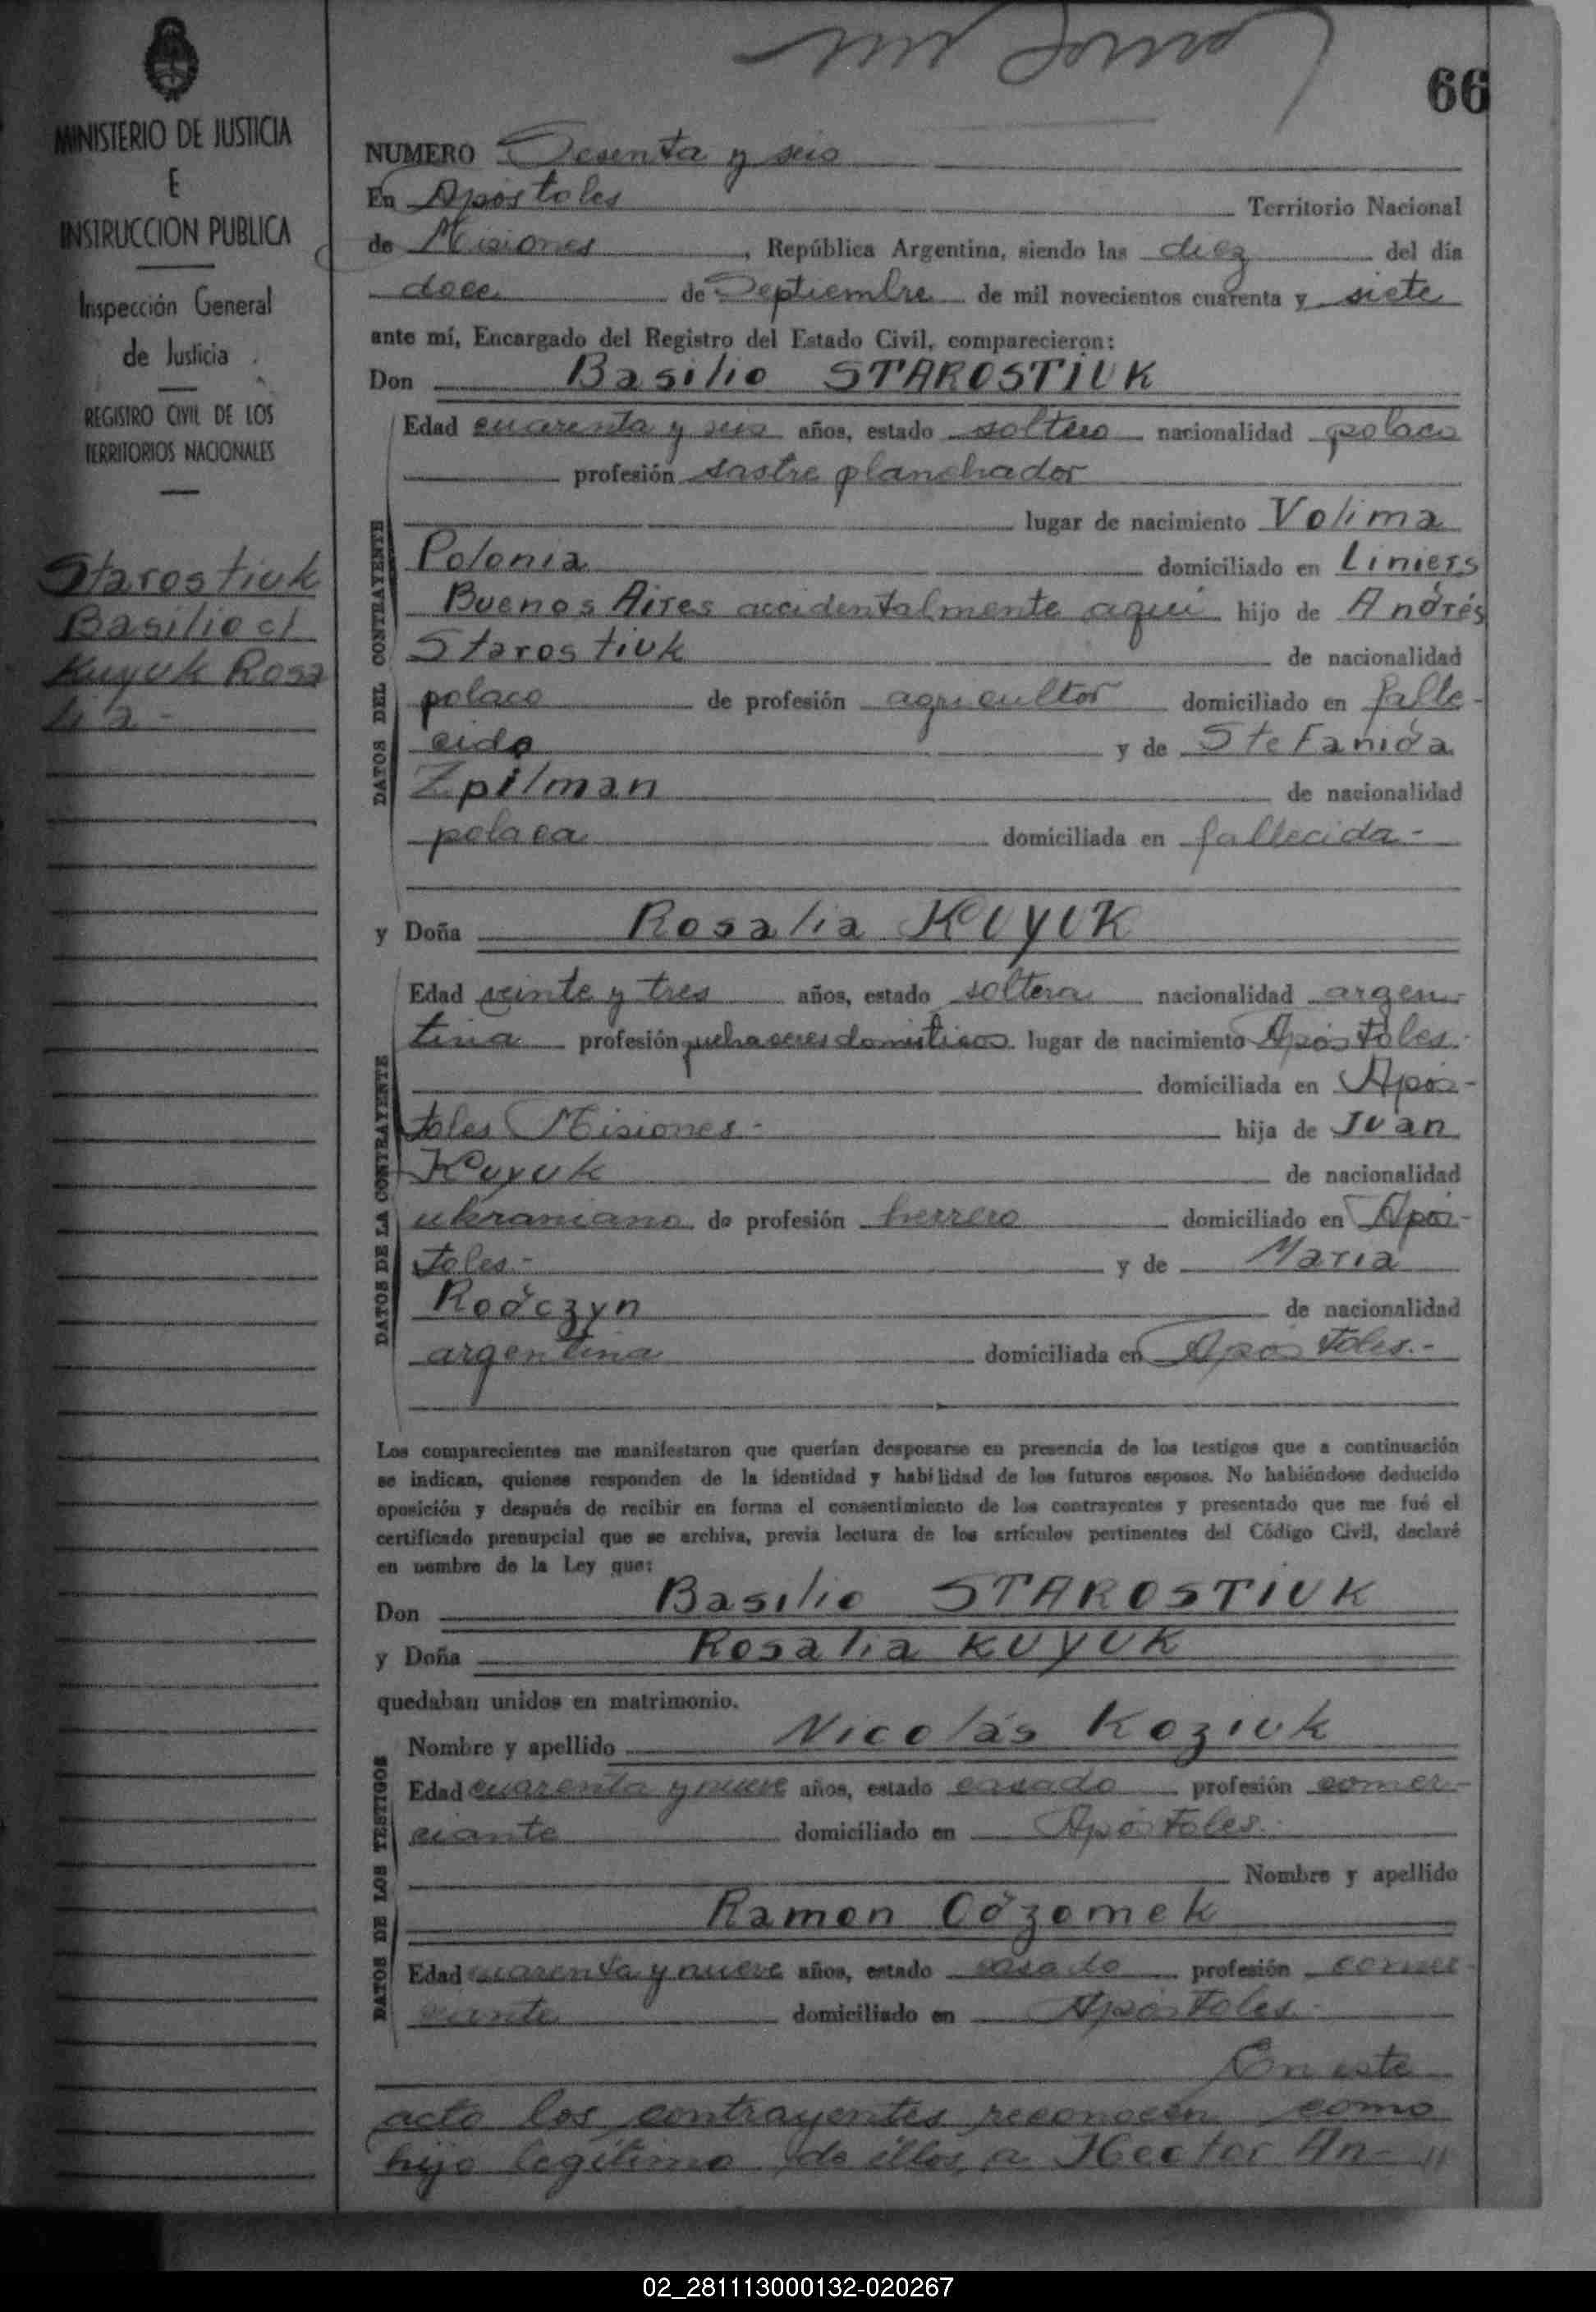 66
MINISTERIO DE JUSTICIA
E
INSTRUCCION PUBLICA
Inspección General
de Justicia
REGISTRO CIVIL DE LOS
TERRITORIOS NACIONALES
Starostiuk
Basilio c/
Kuyuk Rosa
lia-
NUMERO Sesenta y seis
En Apóstoles Territorio Nacional
de Misiones, República Argentina, siendo las diez del día
doce de Septiembre de mil novecientos cuarenta y siete
ante mí, Encargado del Registro del Estado Civil, comparecieron:
Don Basilio STAROSTIUK
DATOS DEL CONTRAYENTE
Edad cuarenta y seis años, estado soltero nacionalidad polaco
profesión sastre planchador
lugar de nacimiento Volima
Polonia domiciliado en Liniers
Buenos Aires accidentalmente aquí hijo de Andrés
Starostiuk de nacionalidad
polaco de profesión agricultor domiciliado en falle-
cido y de Stefanida
Zpilman de nacionalidad
polaca domiciliada en fallecida-
y Doña Rosalia KUYUK
DATOS DE LA CONTRAYENTE
Edad veinte y tres años, estado soltera nacionalidad argen-
tina profesión quehaceres domésticos lugar de nacimiento Apóstoles-
domiciliada en Após-
toles Misiones- hija de Juan
Kuyuk de nacionalidad
ukraniano de profesión herrero domiciliado en Após-
toles- y de Maria
Rodczyn de nacionalidad
argentina domiciliada en Apóstoles.-
Los comparecientes me manifestaron que querían desposarse en presencia de los testigos que a continuación
se indican, quienes responden de la identidad y habilidad de los futuros esposos. No habiéndose deducido
oposición y después de recibir en forma el consentimiento de los contrayentes y presentado que me fué el
certificado prenupcial que se archiva, previa lectura de los artículos pertinentes del Código Civil, declaré
en nombre de la Ley que:
Don Basilio STAROSTIUK
y Doña Rosalia KUYUK
quedaban unidos en matrimonio.
DATOS DE LOS TESTIGOS
Nombre y apellido Nicolás Koziuk
Edad cuarenta y nueve años, estado casado profesión comer-
ciante domiciliado en Apóstoles-
Nombre y apellido
Ramon Odzomek
Edad cuarenta y nueve años, estado casado profesión comer-
ciante domiciliado en Apóstoles-
En este
acto los contrayentes reconocen como
hijo legítimo de ellos a Hector An- //
02_281113000132-020267